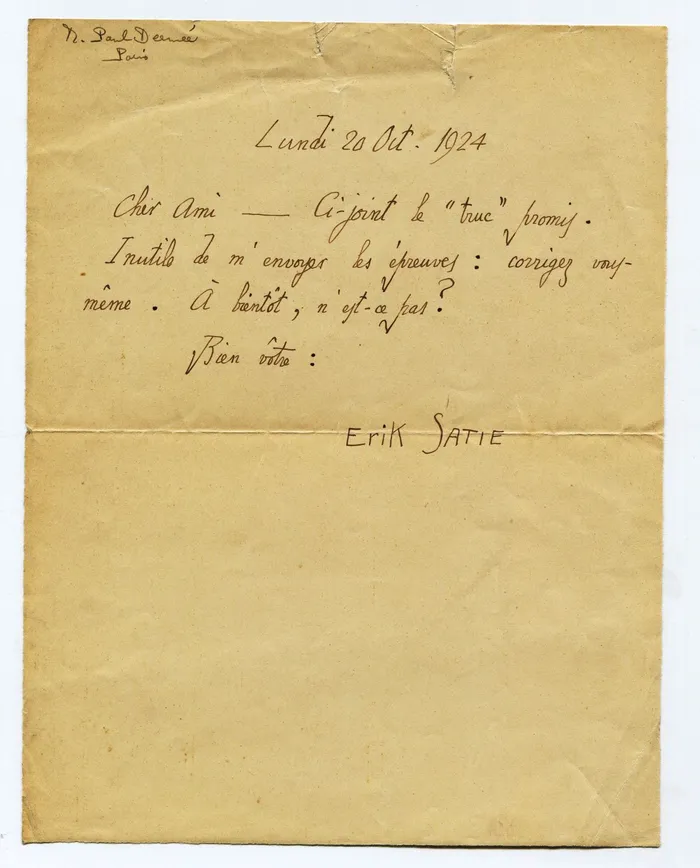 M. Paul Dermée
Paris
Lundi 20 Oct. 1924
Cher Ami — Ci-joint le "truc" promis.
Inutile de m'envoyer les épreuves : corrigez vous-
même. À bientôt, n'est-ce pas ?
Bien vôtre :
Erik SATIE